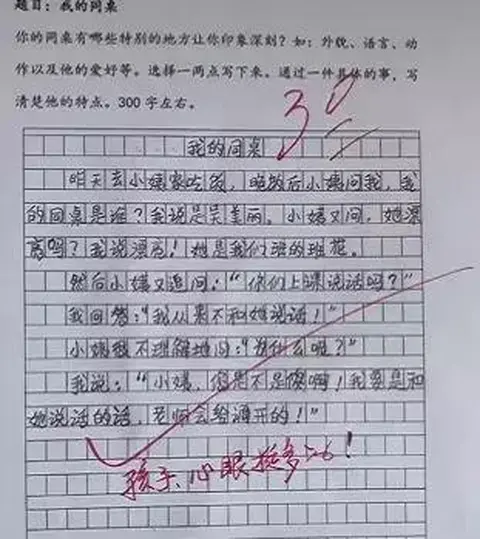 题目：我的同桌
你的同桌有哪些特别的地方让你印象深刻？如：外貌、语言、动
作以及他的爱好等。选择一两点写下来。通过一件具体的事，写
清楚他的特点。300字左右。
30
我的同桌
昨天去小姨家吃饭，然后小姨问我，我
的同桌是谁？我说是吴美丽。小姨又问，她漂
亮吗？我说漂亮！她是我们班的班花。
然后小姨又追问：“你们上课说话吗？”
我回答：“我从来不和她说话！”
小姨很不理解地问：“为什么呢？”
我说：“小姨，你是不是傻啊！我要是和
她说话的话，老师会给调开的！”
孩子，心眼挺多

！